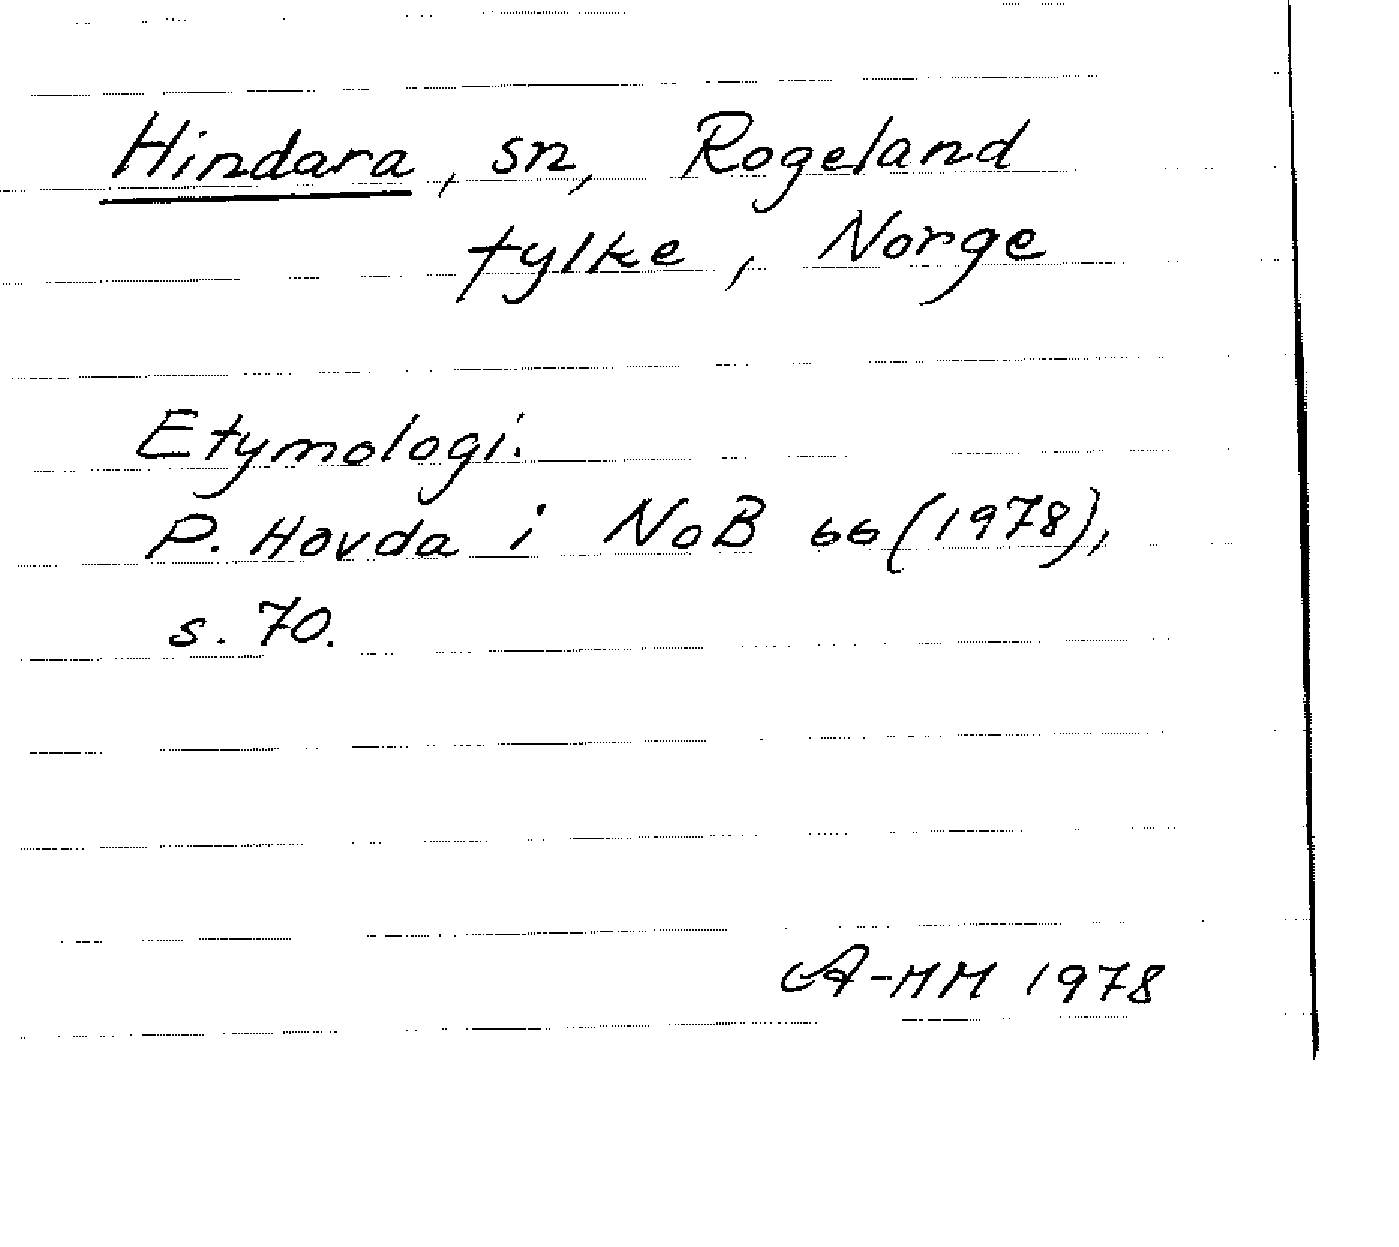 Hindara, sn, Rogeland
fylke, Norge
Etymologi.
P. Hovda i NoB 66 (1978),
s. 70.
A-MM 1978